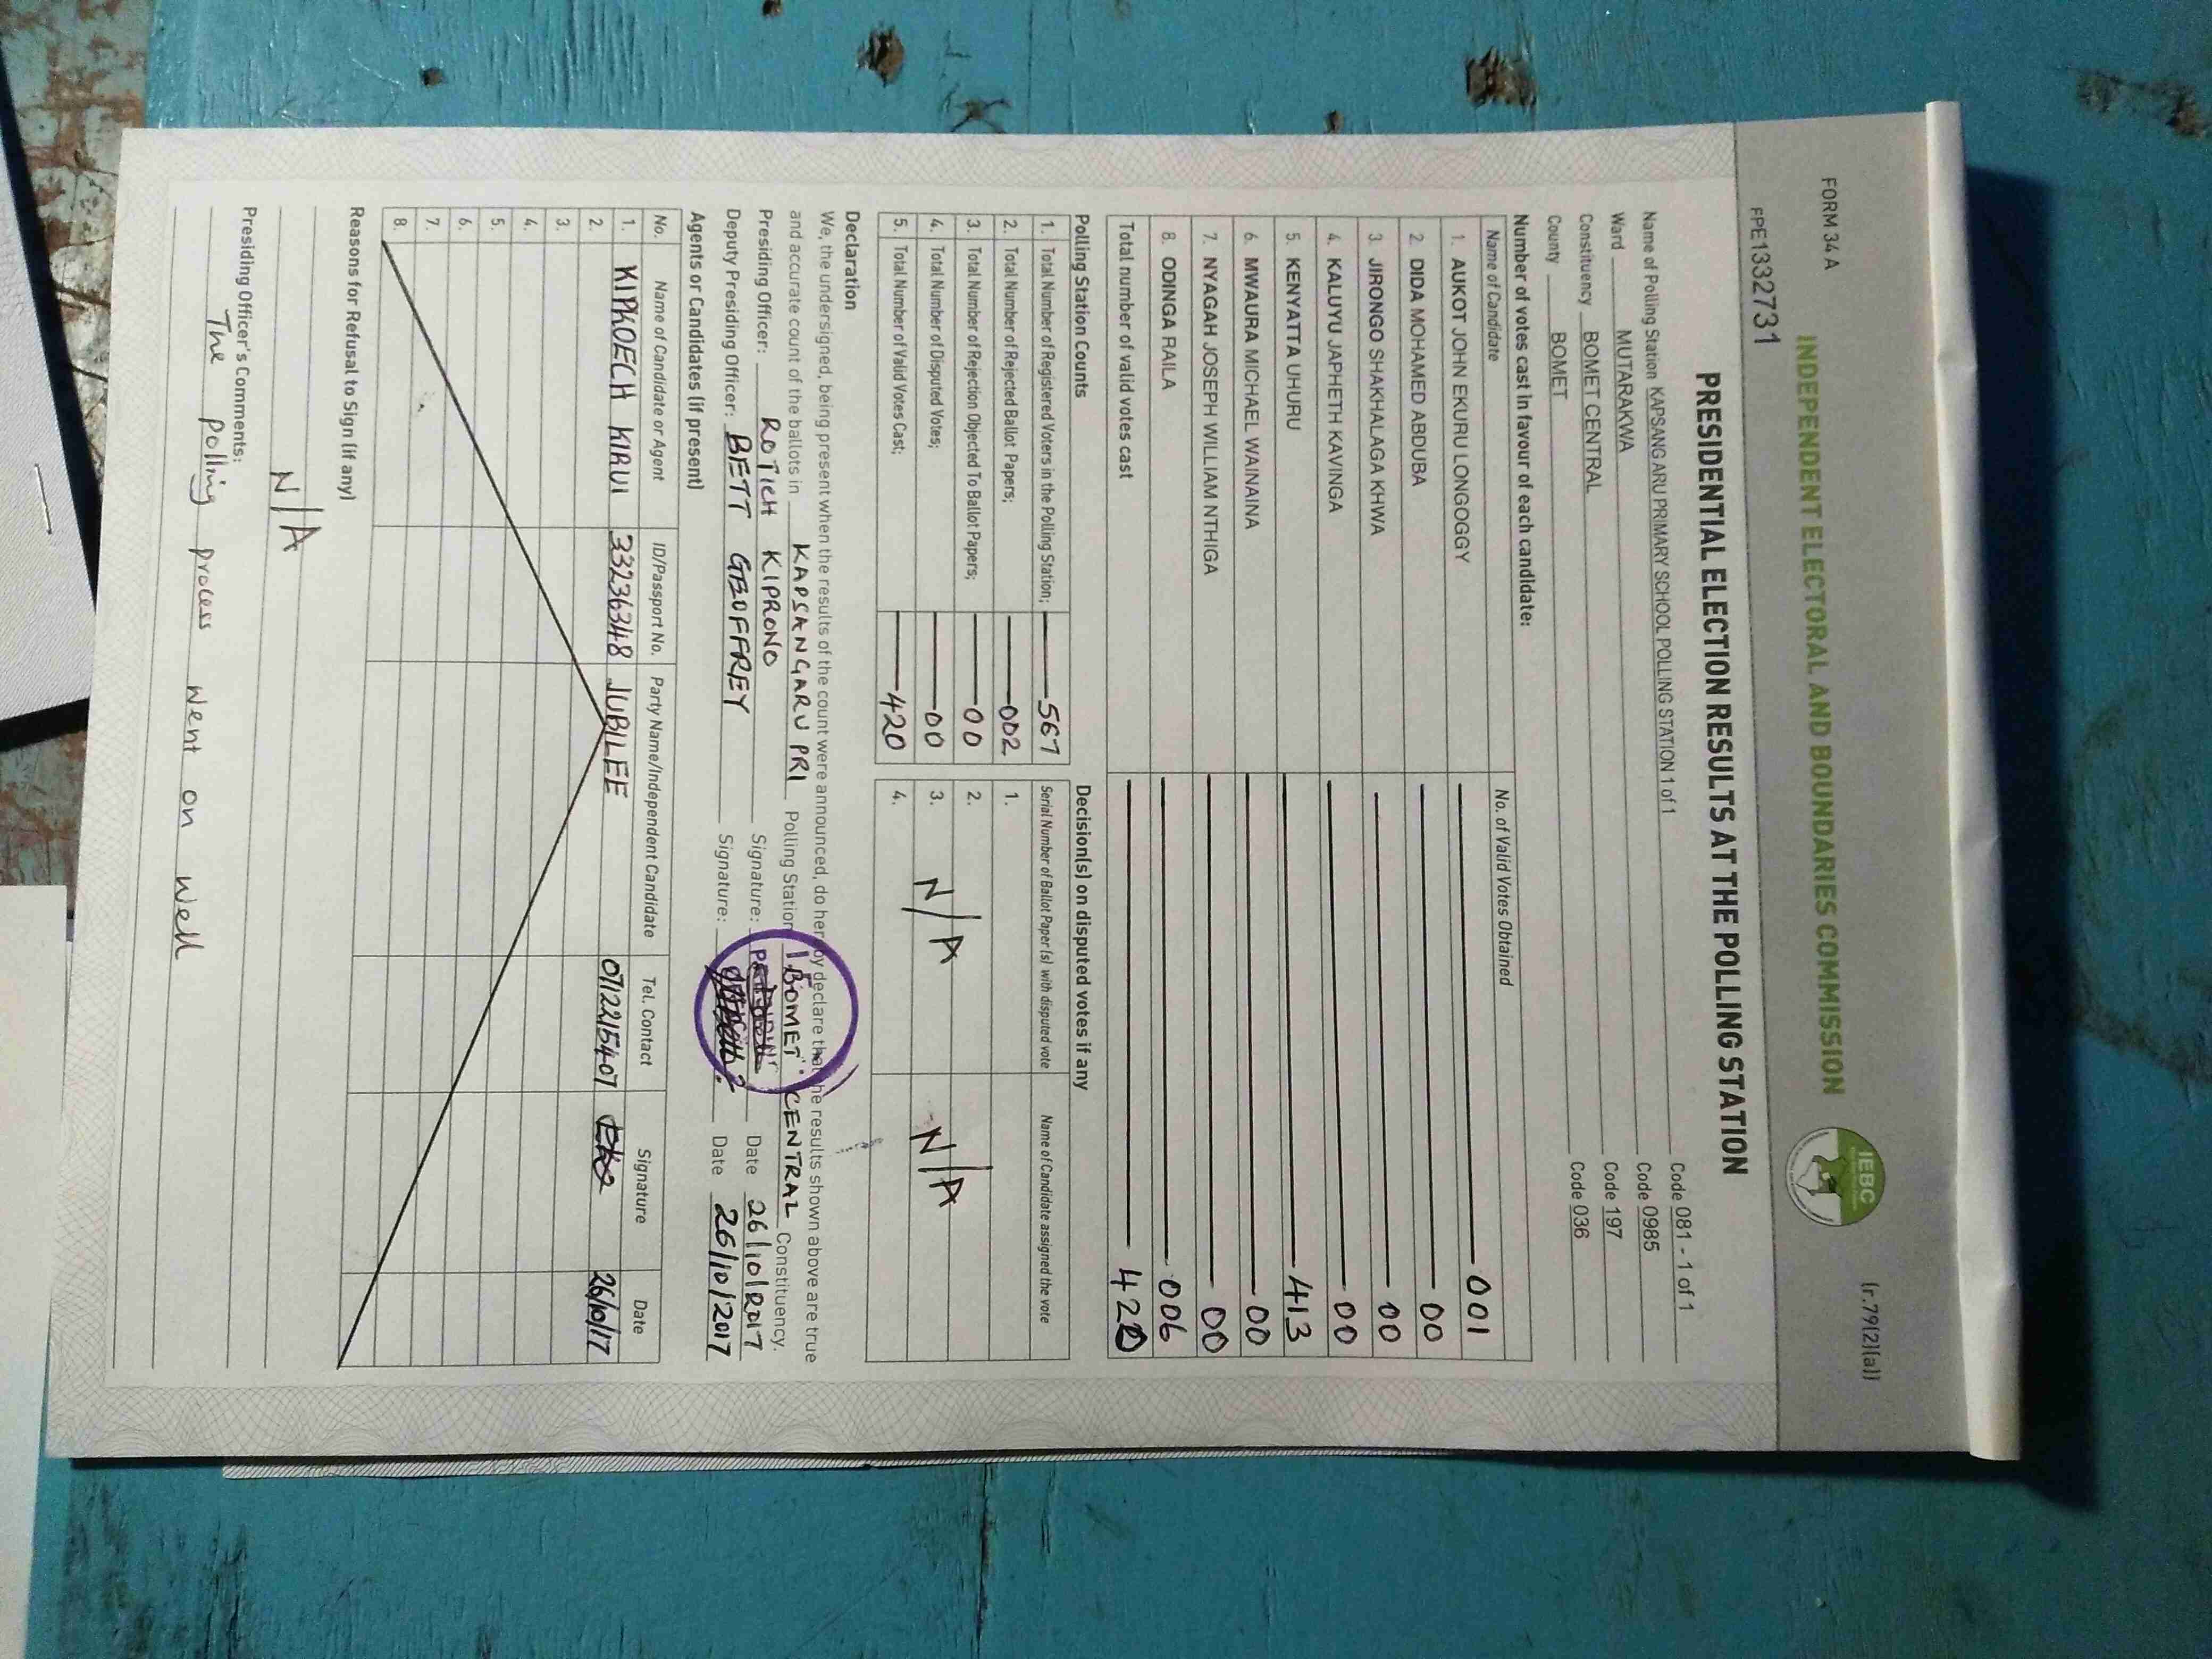 FORM 34A
(r.79(2)(a))
INDEPENDENT ELECTORAL AND BOUNDARIES COMMISSION
IEBC
FPE1332731
PRESIDENTIAL ELECTION RESULTS AT THE POLLING STATION
Name of Polling Station KAPSANG ARU PRIMARY SCHOOL POLLING STATION 1 of 1 Code 081 - 1 of 1
Ward MUTARAKWA Code 0985
Constituency BOMET CENTRAL Code 197
County BOMET Code 036
Number of votes cast in favour of each candidate:
Name of Candidate No. of Valid Votes Obtained
1. AUKOT JOHN EKURU LONGOGGY 001
2. DIDA MOHAMED ABDUBA 00
3. JIRONGO SHAKHALAGA KHWA 00
4. KALUYU JAPHETH KAVINGA 00
5. KENYATTA UHURU 413
6. MWAURA MICHAEL WAINAINA 00
7. NYAGAH JOSEPH WILLIAM NTHIGA 00
8. ODINGA RAILA 006
Total number of valid votes cast 420
Polling Station Counts Decision(s) on disputed votes if any
1. Total Number of Registered Voters in the Polling Station; 567 Serial Number of Ballot Paper (s) with disputed vote Name of Candidate assigned the vote
2. Total Number of Rejected Ballot Papers; 002 1.
3. Total Number of Rejection Objected To Ballot Papers; 00 2.
4. Total Number of Disputed Votes; 00 3. N/A N/A
5. Total Number of Valid Votes Cast; 420 4.
Declaration
We, the undersigned, being present when the results of the count were announced, do hereby declare that the results shown above are true
and accurate count of the ballots in KAPSANGARU PRI Polling Station BOMET CENTRAL Constituency.
Presiding Officer: ROTICH KIPRONO Signature: Date 26/10/2017
Deputy Presiding Officer: BETT GEOFFREY Signature: Date 26/10/2017
Agents or Candidates (if present)
No. Name of Candidate or Agent ID/Passport No. Party Name/Independent Candidate Tel. Contact Signature Date
1. KIPKOECH KIRUI 33236348 JUBILEE 0712215407 26/10/17
2.
3.
4.
5.
6.
7.
8.
Reasons for Refusal to Sign (if any)
N/A
Presiding Officer's Comments:
The polling process went on well